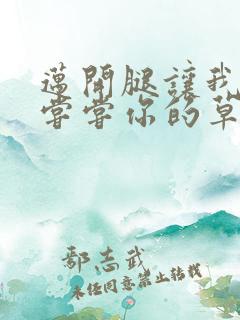 邁開腿讓我
嘗嘗你的草
鄢志武
未经同意禁止转载